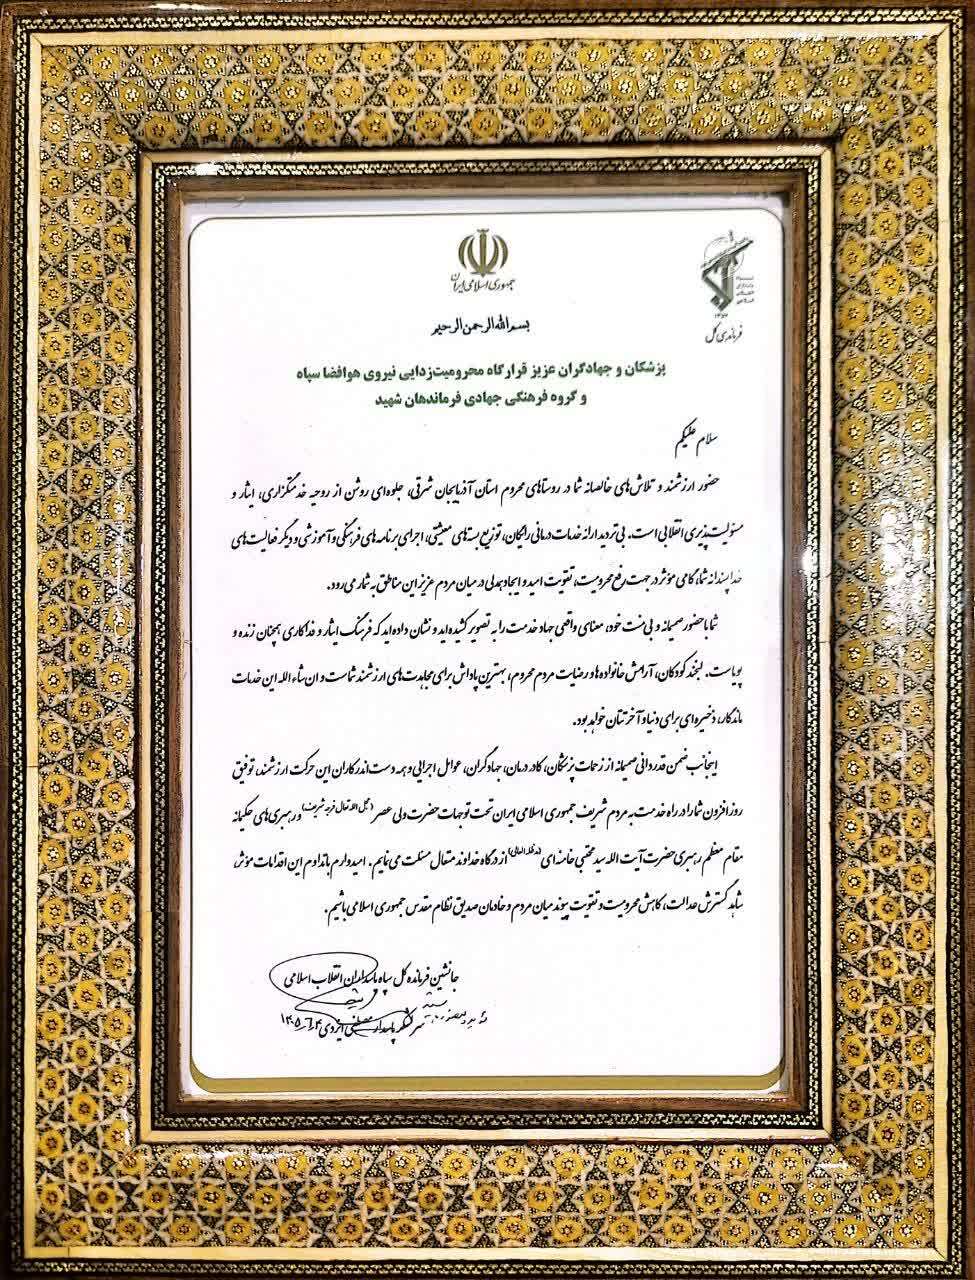 جمهوری اسلامی ایران
۱۳۵۷
فرماندهی کل
بسم الله الرحمن الرحیم
پزشکان و جهادگران عزیز قرارگاه محرومیت‌زدایی نیروی هوافضا سپاه
و گروه فرهنگی جهادی فرماندهان شهید
سلام علیکم
حضور ارزشمند و تلاش‌های خالصانه شما در روستاهای محروم استان آذربایجان شرقی، جلوه‌ای روشن از روحیه خدمتگزاری، ایثار و
مسئولیت‌پذیری انقلابی است. بی‌تردید ارائه خدمات درمانی رایگان، توزیع بسته‌های معیشتی، اجرای برنامه‌های فرهنگی و آموزشی و دیگر فعالیت‌های
خداپسندانه شما، گامی مؤثر در جهت رفع محرومیت، تقویت امید و ایجاد همدلی در میان مردم عزیز این مناطق به شمار می‌رود.
شما با حضور صمیمانه و بی‌منت خود، معنای واقعی جهاد خدمت را به تصویر کشیده‌اید و نشان داده‌اید که فرهنگ ایثار و فداکاری همچنان زنده و
پویاست. لبخند کودکان، آرامش خانواده‌ها و رضایت مردم محروم، بهترین پاداش برای مجاهدت‌های ارزشمند شماست و ان شاءالله این خدمات
ماندگار، ذخیره‌ای برای دنیا و آخرتتان خواهد بود.
اینجانب ضمن قدردانی صمیمانه از زحمات پزشکان، کادر درمان، جهادگران، عوامل اجرایی و همه دست‌اندرکاران این حرکت ارزشمند، توفیق
روزافزون شما را در راه خدمت به مردم شریف جمهوری اسلامی ایران تحت توجهات حضرت ولی عصر (عجل الله تعالی فرجه شریف) و رهبری‌های حکیمانه
مقام معظم رهبری حضرت آیت الله سید مجتبی خامنه‌ای (مدظله العالی) از درگاه خداوند متعال مسئلت می‌نمایم. امیدوارم با تداوم این اقدامات مؤثر،
شاهد گسترش عدالت، کاهش محرومیت و تقویت پیوند میان مردم و خادمان صدیق نظام مقدس جمهوری اسلامی باشیم.
جانشین فرمانده کل سپاه پاسداران انقلاب اسلامی
سرلشکر پاسدار ایزدی